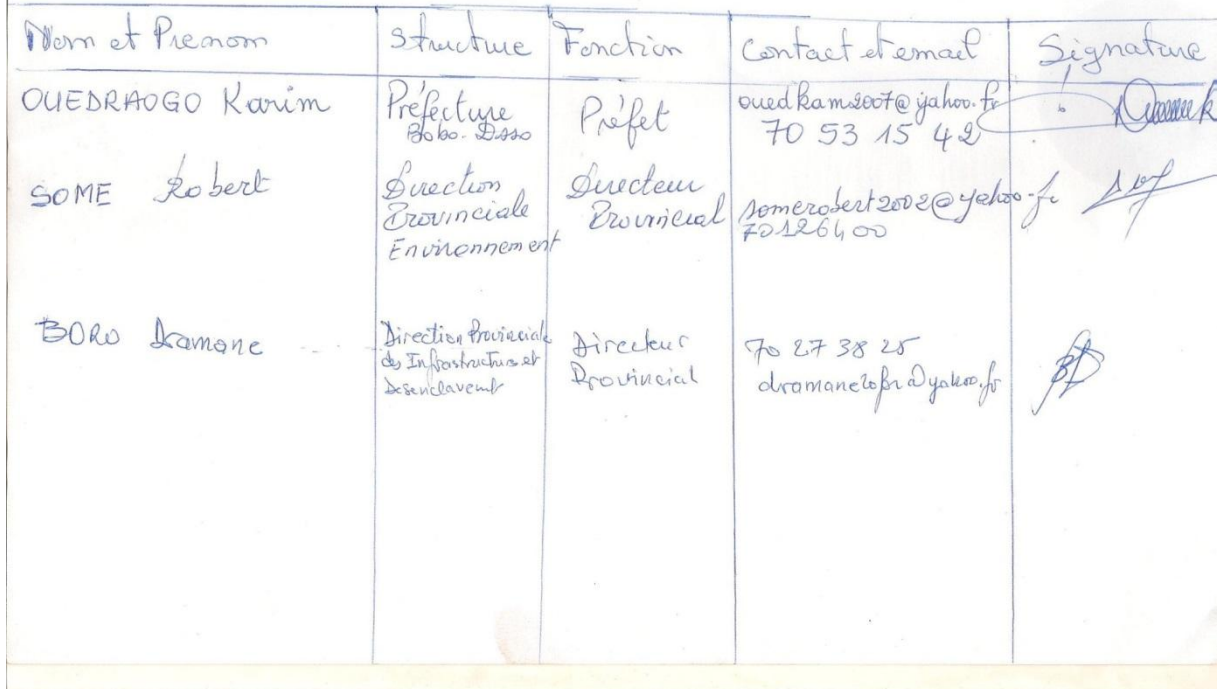 Nom et Prenom
Structure
Fonction
Contact et email
Signature
OUEDRAOGO Karim
Préfecture
Bobo-Dsso
Préfet
ouedkam2007@yahoo.fr
70 53 15 42
SOME Robert
Direction
Provinciale
Environnement
Directeur
Provincial
somerobert2002@yahoo.fr
70126400
BORO Dramane
Direction Provinciale
des Infrastructures et
Desenclavemt
Directeur
Provincial
70 27 38 25